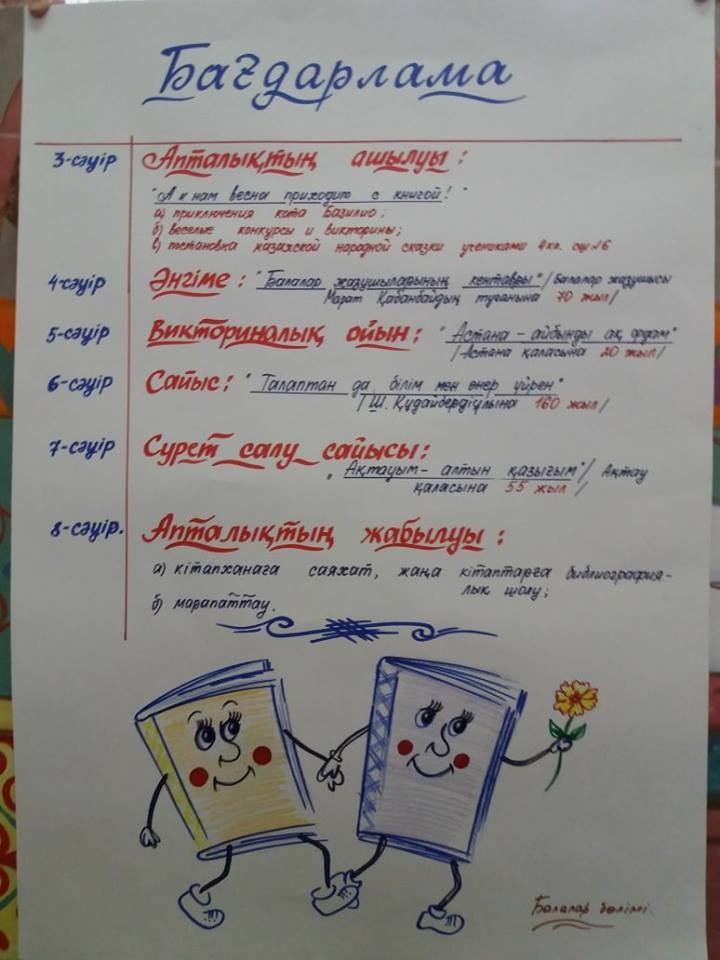 Бағдарлама
3-сәуір Апталықтың ашылуы:
"А к нам весна приходит с книгой!"
а) приключения кота Базилио;
б) веселые конкурсы и викторины;
в) постановка казахской народной сказки учениками 4 кл. сш №6
4-сәуір Әңгіме: "Балалар жазушыларының кентавры" / Балалар жазушысы
Марат Қабанбайдың туғанына 70 жыл/
5-сәуір Викториналық ойын: "Астана - айбынды ақ ордам"
/Астана қаласына 20 жыл/
6-сәуір Сайыс: "Талаптан да, білім мен өнер үйрен"
/Ш. Құдайбердіұлына 160 жыл/
7-сәуір Сурет салу сайысы:
"Ақтауым - алтын қазығым" / Ақтау
қаласына 55 жыл /
8-сәуір. Апталықтың жабылуы:
а) кітапханаға саяхат, жаңа кітаптарға библиография-
лық шолу;
б) марапаттау.
Балалар бөлімі.